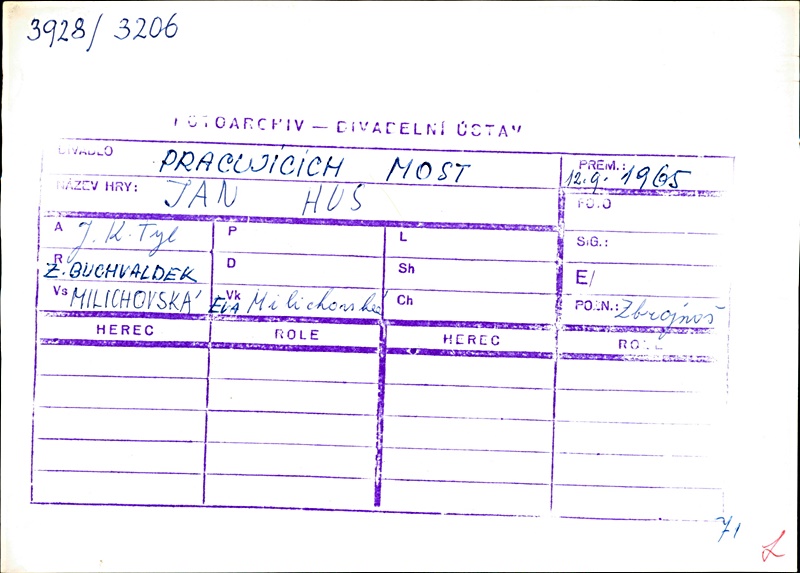 3928/ 3206
FOTOARCHIV — DIVADELNÍ ÚSTAV
DIVADLO PRACUJÍCÍCH MOST
PREM.: 12.9. 1965
NÁZEV HRY: JAN HUS
FOTO
A J. K. Tyl P L
SIG.:
R Z. BUCHVALDEK D Sh
E/
Vs MILICHOVSKÁ Vk EVA Milichovská Ch
POZN.: Zbrojnoš
HEREC ROLE HEREC ROLE
71
L